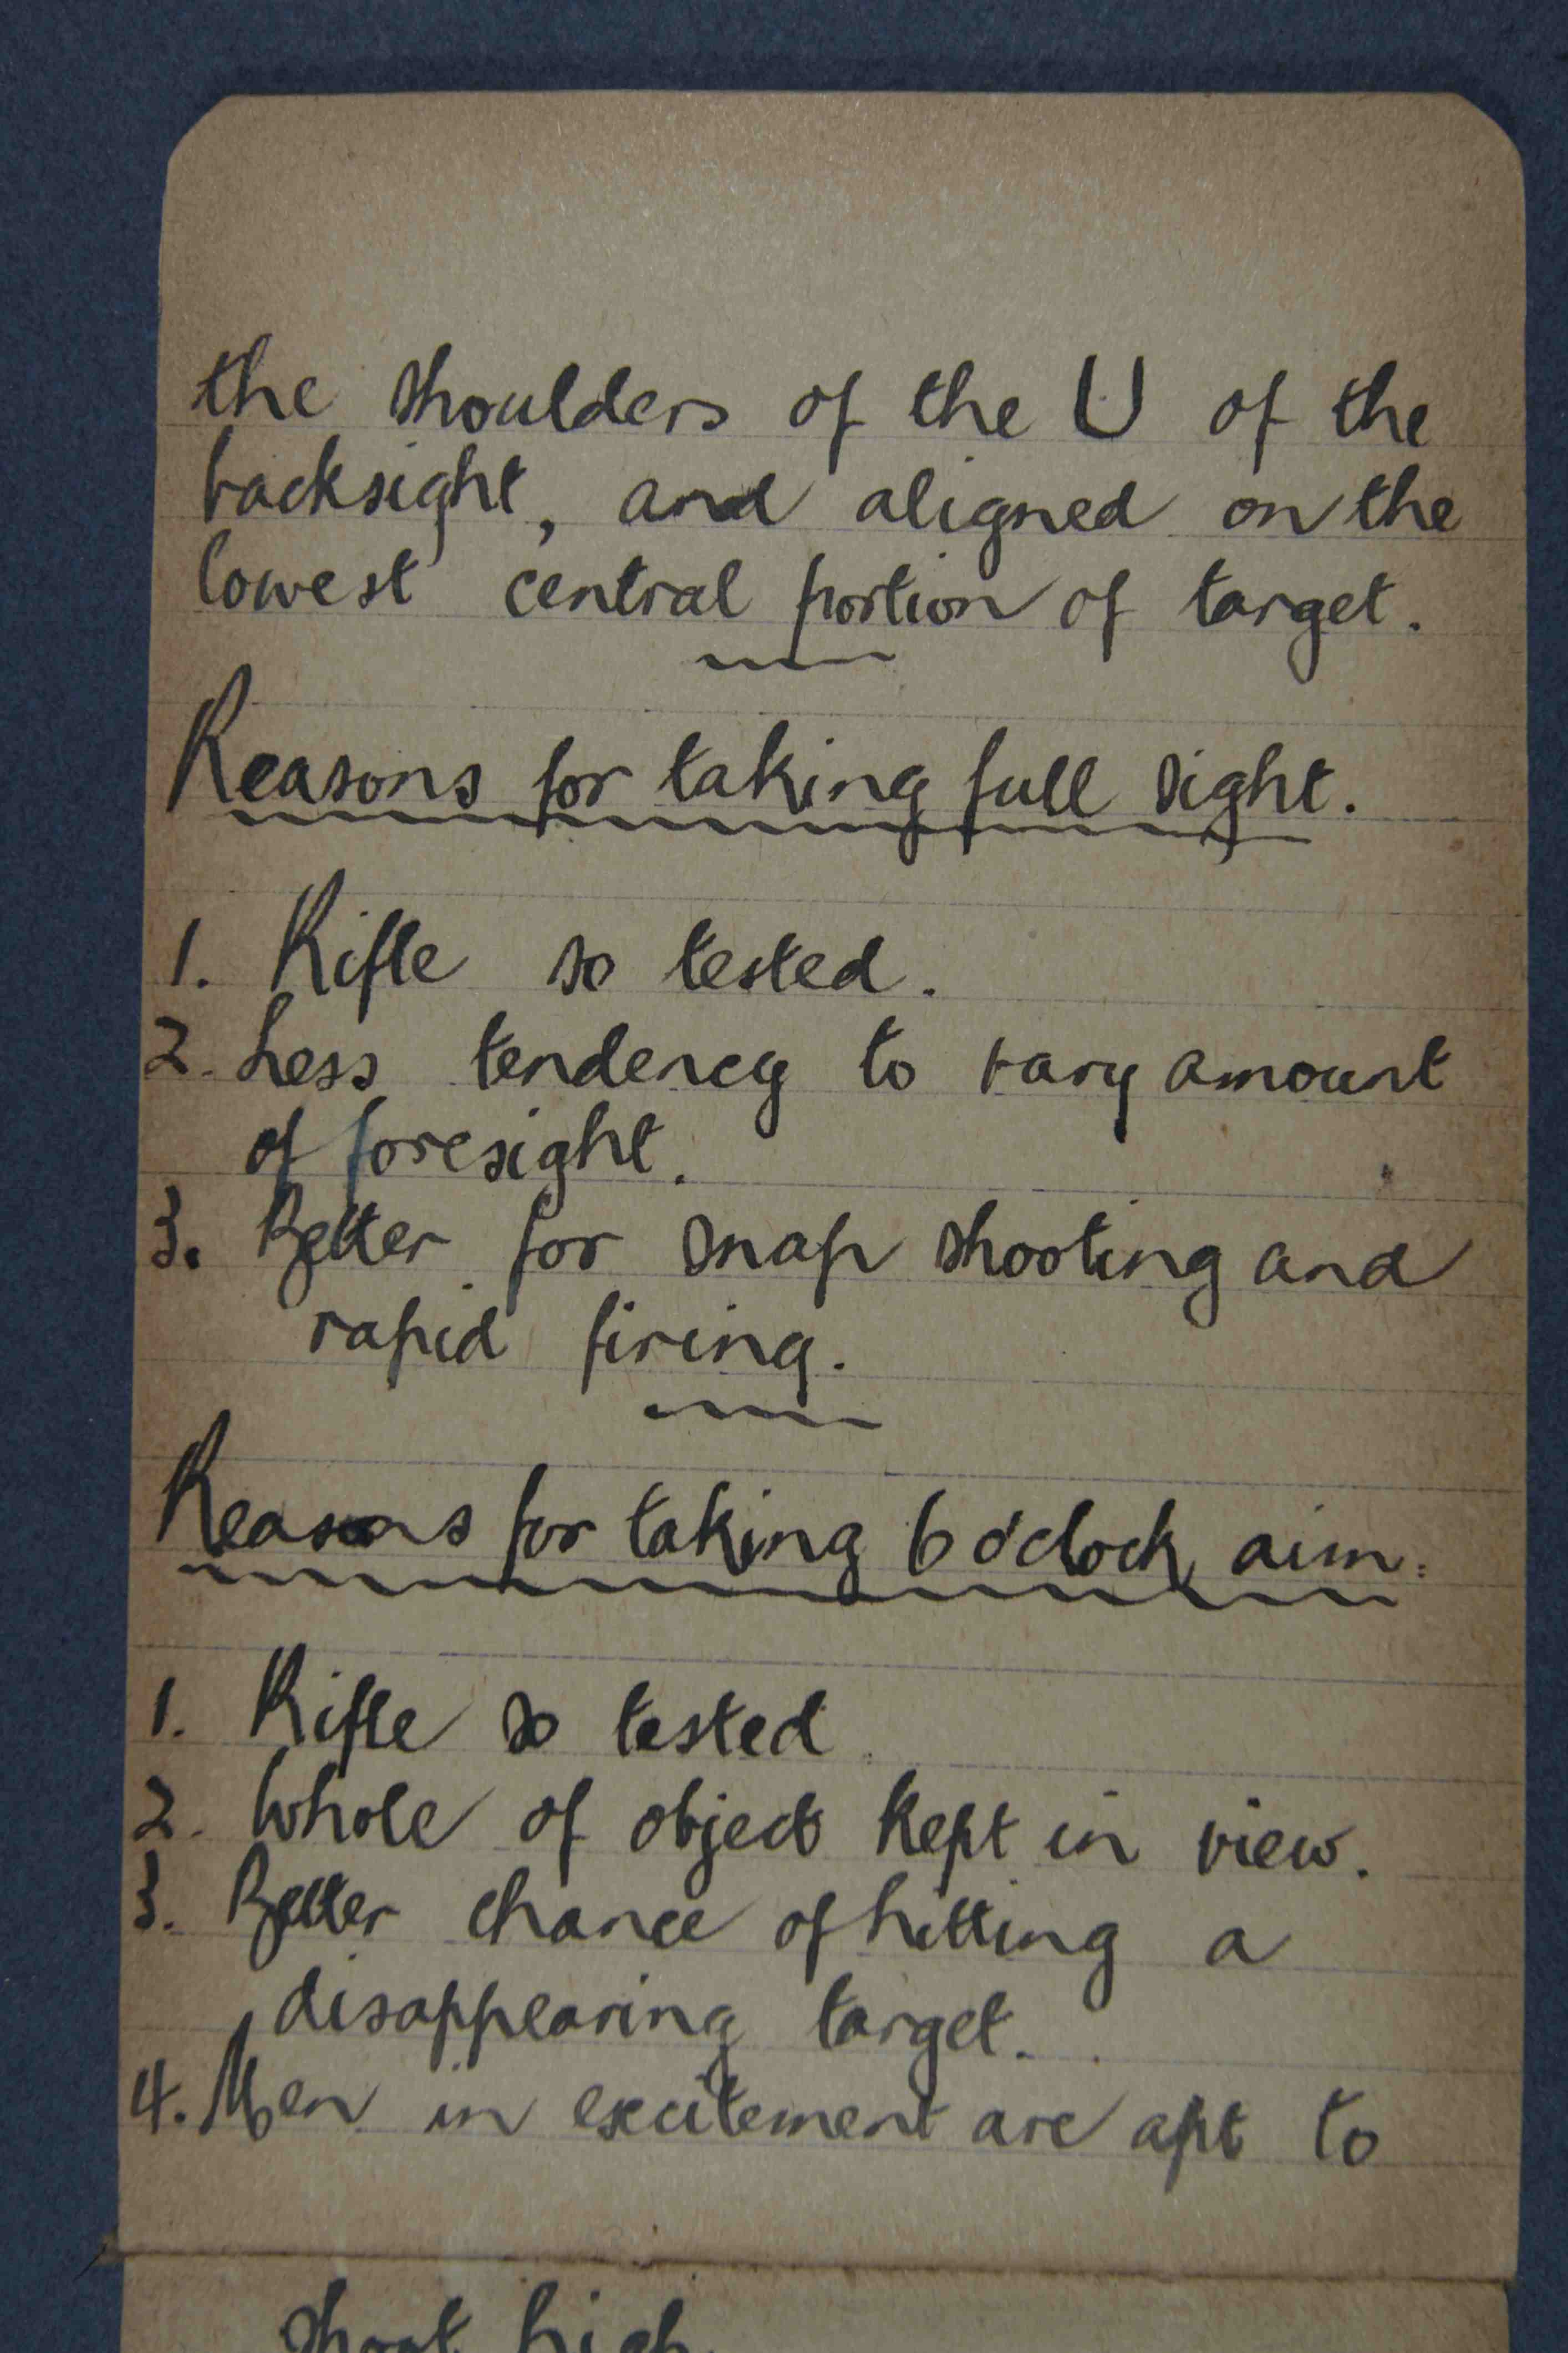 the shoulders of the U of the
backsight, and aligned on the
lowest central portion of target.
Reasons for taking full sight.
1. Rifle so tested.
2. Less tendency to vary amount
of foresight.
3. Better for snap shooting and
rapid firing.
Reasons for taking 6 o'clock aim.
1. Rifle so tested
2. Whole of object kept in view.
3. Better chance of hitting a
disappearing target.
4. Men in excitement are apt to
shoot high.